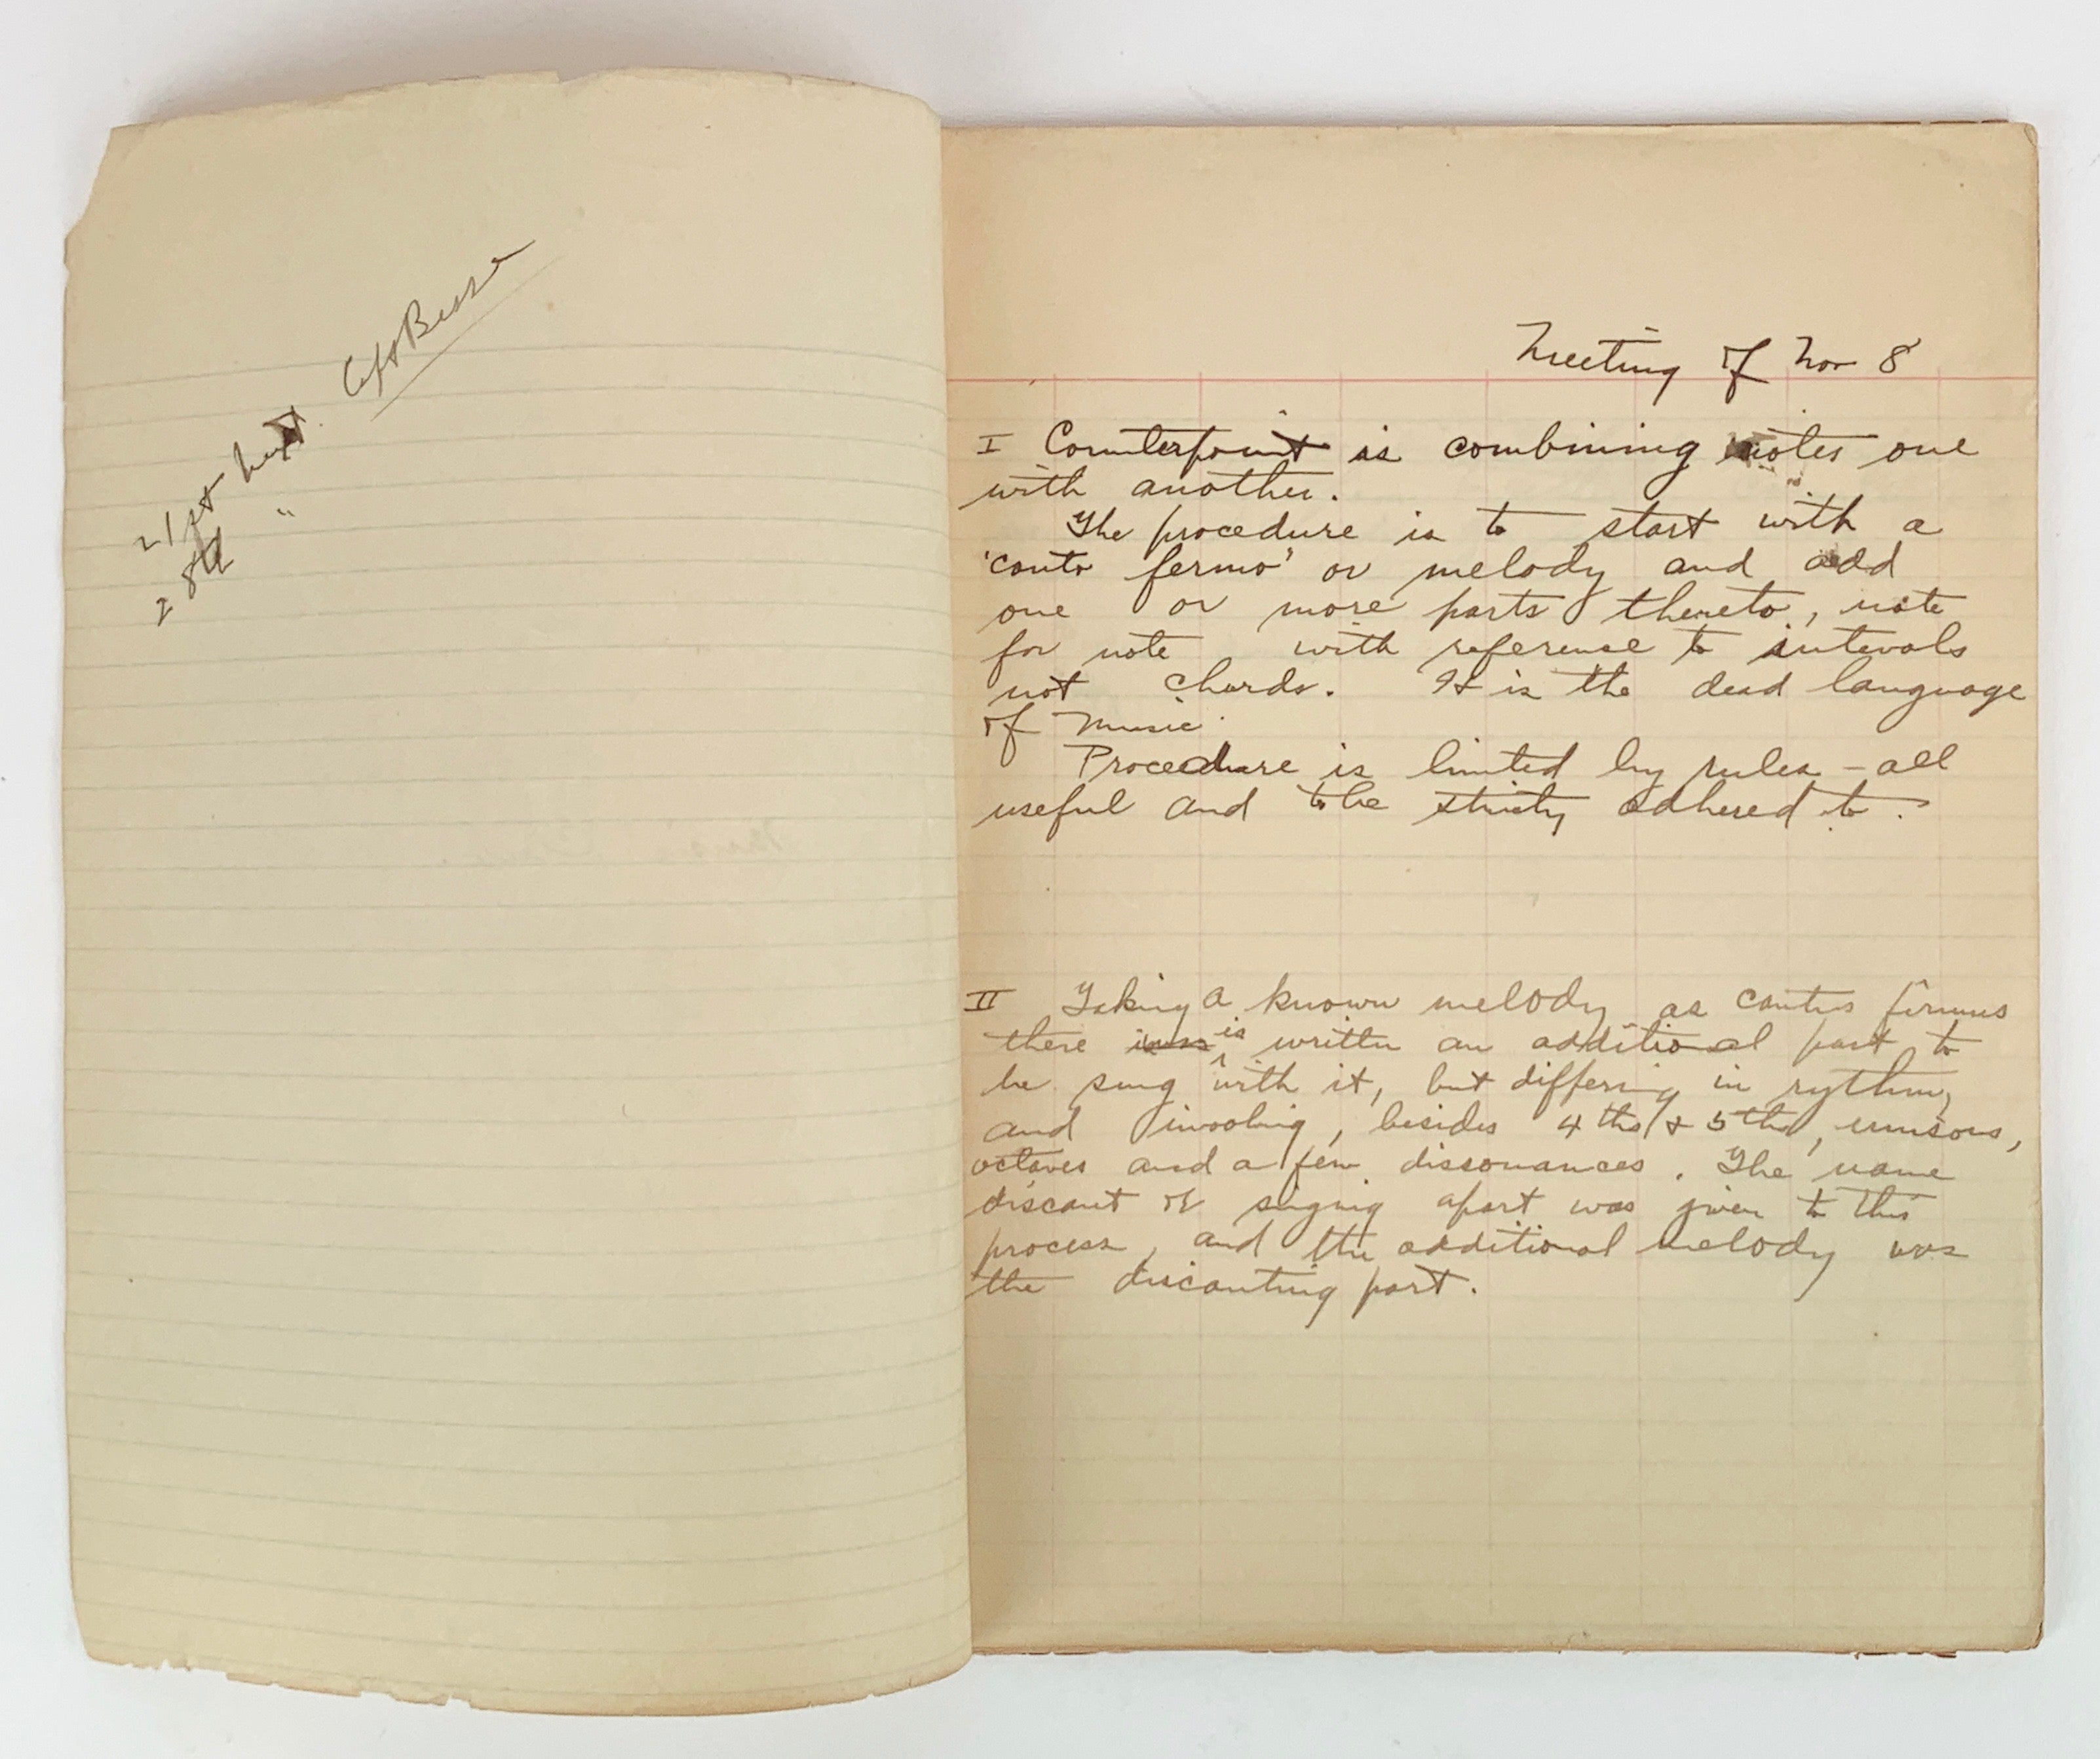 21st
28th "
Meeting of Nov 8
I Counterpoint is combining notes one
with another.
The procedure is to start with a
'canto fermo' or melody and add
one or more parts thereto, note
for note with reference to intevals
not chords. It is the dead language
of music.
Procedure is limited by rules - all
useful and to be stricty adhered to.
II Taking a known melody as cantus firmus
there is written an additional part to
be sung with it, but differing in rythm,
and involving, besides 4ths & 5ths, unisons,
octaves and a few dissonances. The name
discant or singing apart was given to this
process, and the additional melody was
the discanting part.